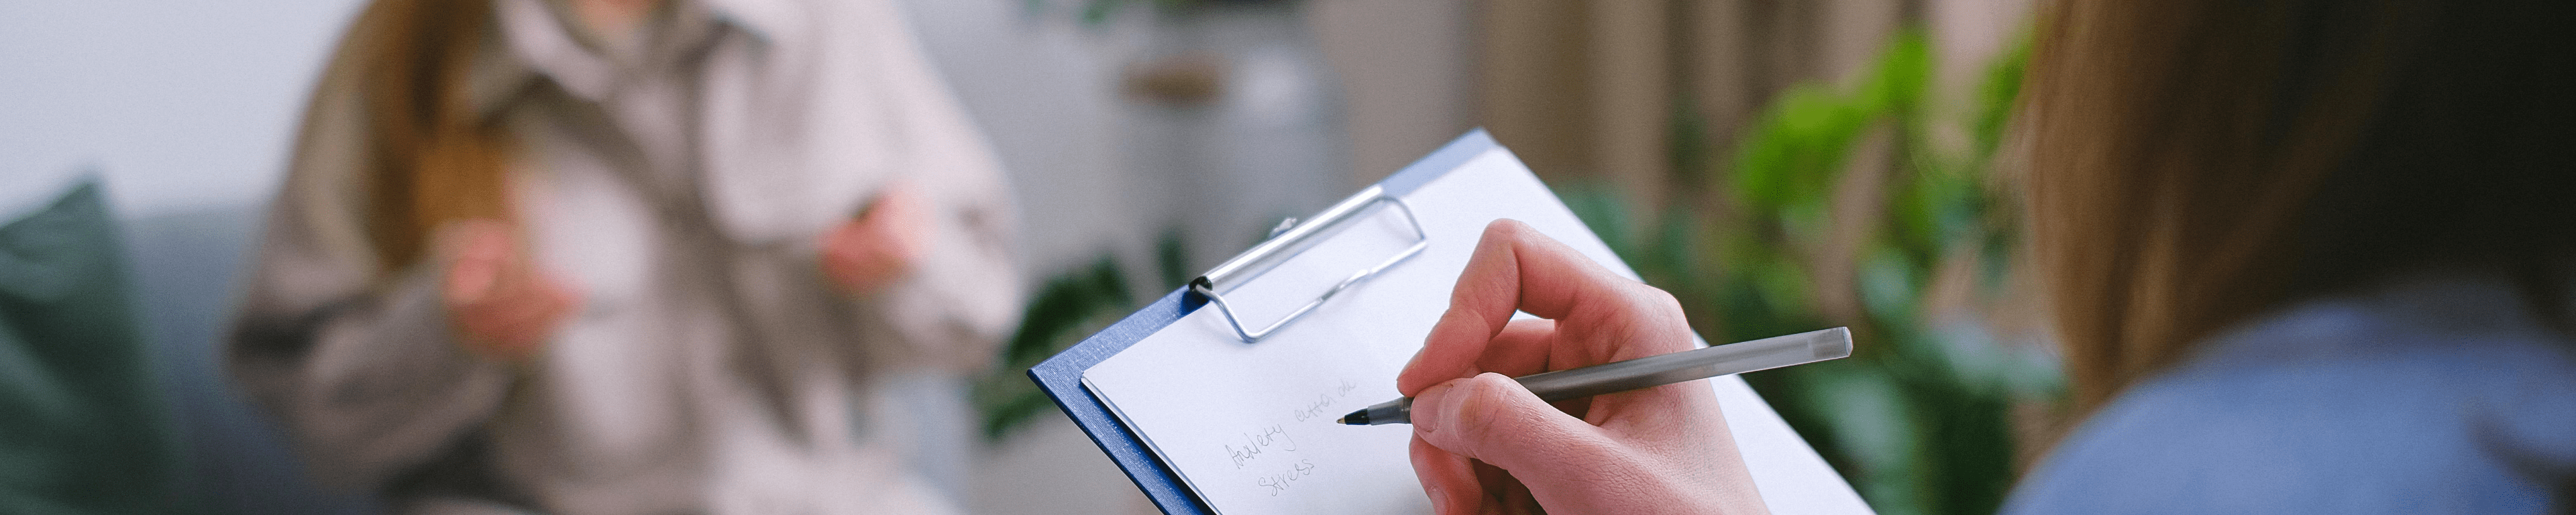 Anxiety attack
Stress